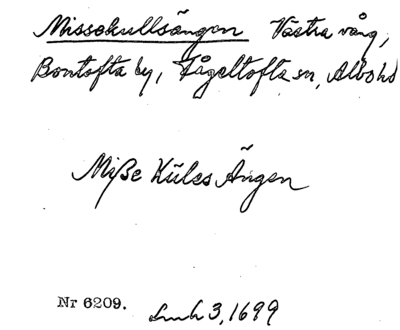 Missekullsängen Västra vång,
Bontofta by, Fågeltofta sn, Albo hd
Miße Kūles Ängen
Nr 6209. Lmk 3, 1699